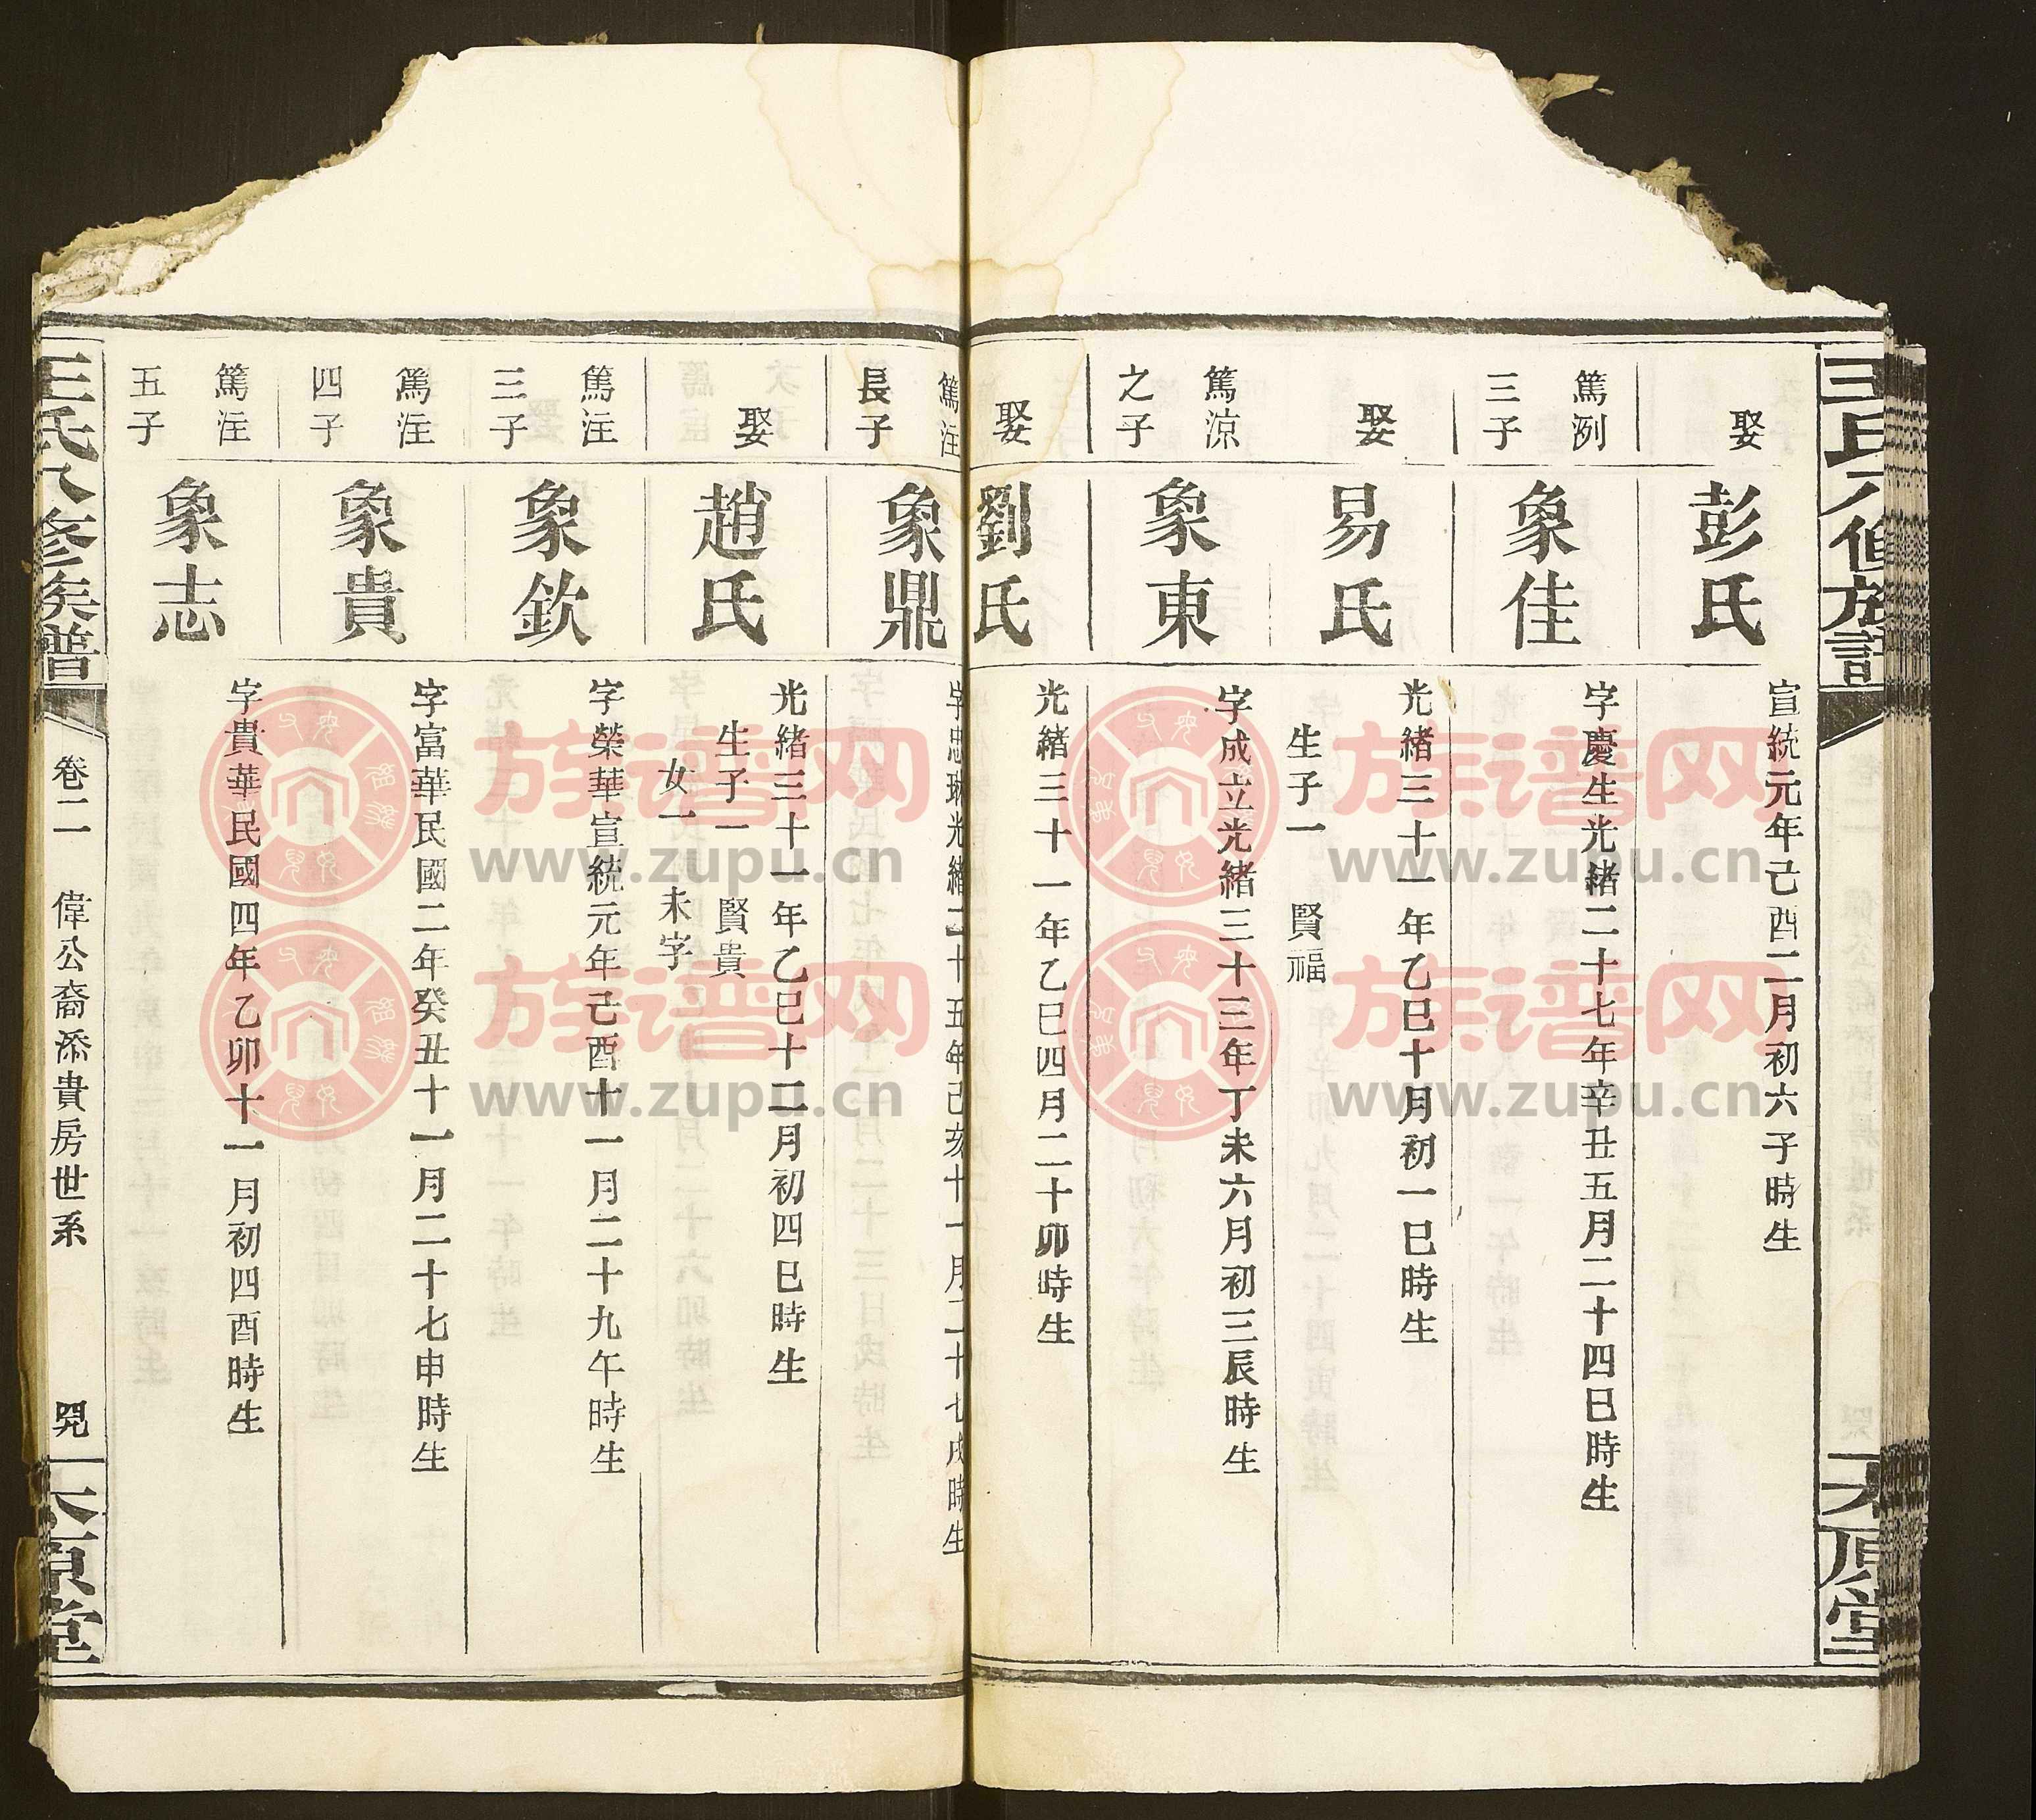 王氏八修族譜
太原堂
娶
彭氏
宣統元年己酉二月初六子時生
篤洌
三子
象佳
字慶生光緒二十七年辛丑五月二十四巳時生
娶
易氏
光緒三十一年乙巳十月初一巳時生
生子一 賢福
篤涼
之子
象東
字成立光緒三十三年丁未六月初三辰時生
娶
劉氏
光緒三十一年乙巳四月二十卯時生
篤注
長子
象鼎
字忠琳光緒二十五年己亥十一月二十七戌時生
娶
趙氏
光緒三十一年乙巳十二月初四巳時生
生子一 賢貴
女一 未字
篤注
三子
象欽
字榮華宣統元年己酉十一月二十九午時生
篤注
四子
象貴
字富華民國二年癸丑十一月二十七申時生
篤注
五子
象志
字貴華民國四年乙卯十一月初四酉時生
王氏八修族譜
卷二 偉公裔添貴房世系
太原堂
族谱网
www.zupu.cn
族谱网
www.zupu.cn
族谱网
www.zupu.cn
族谱网
www.zupu.cn